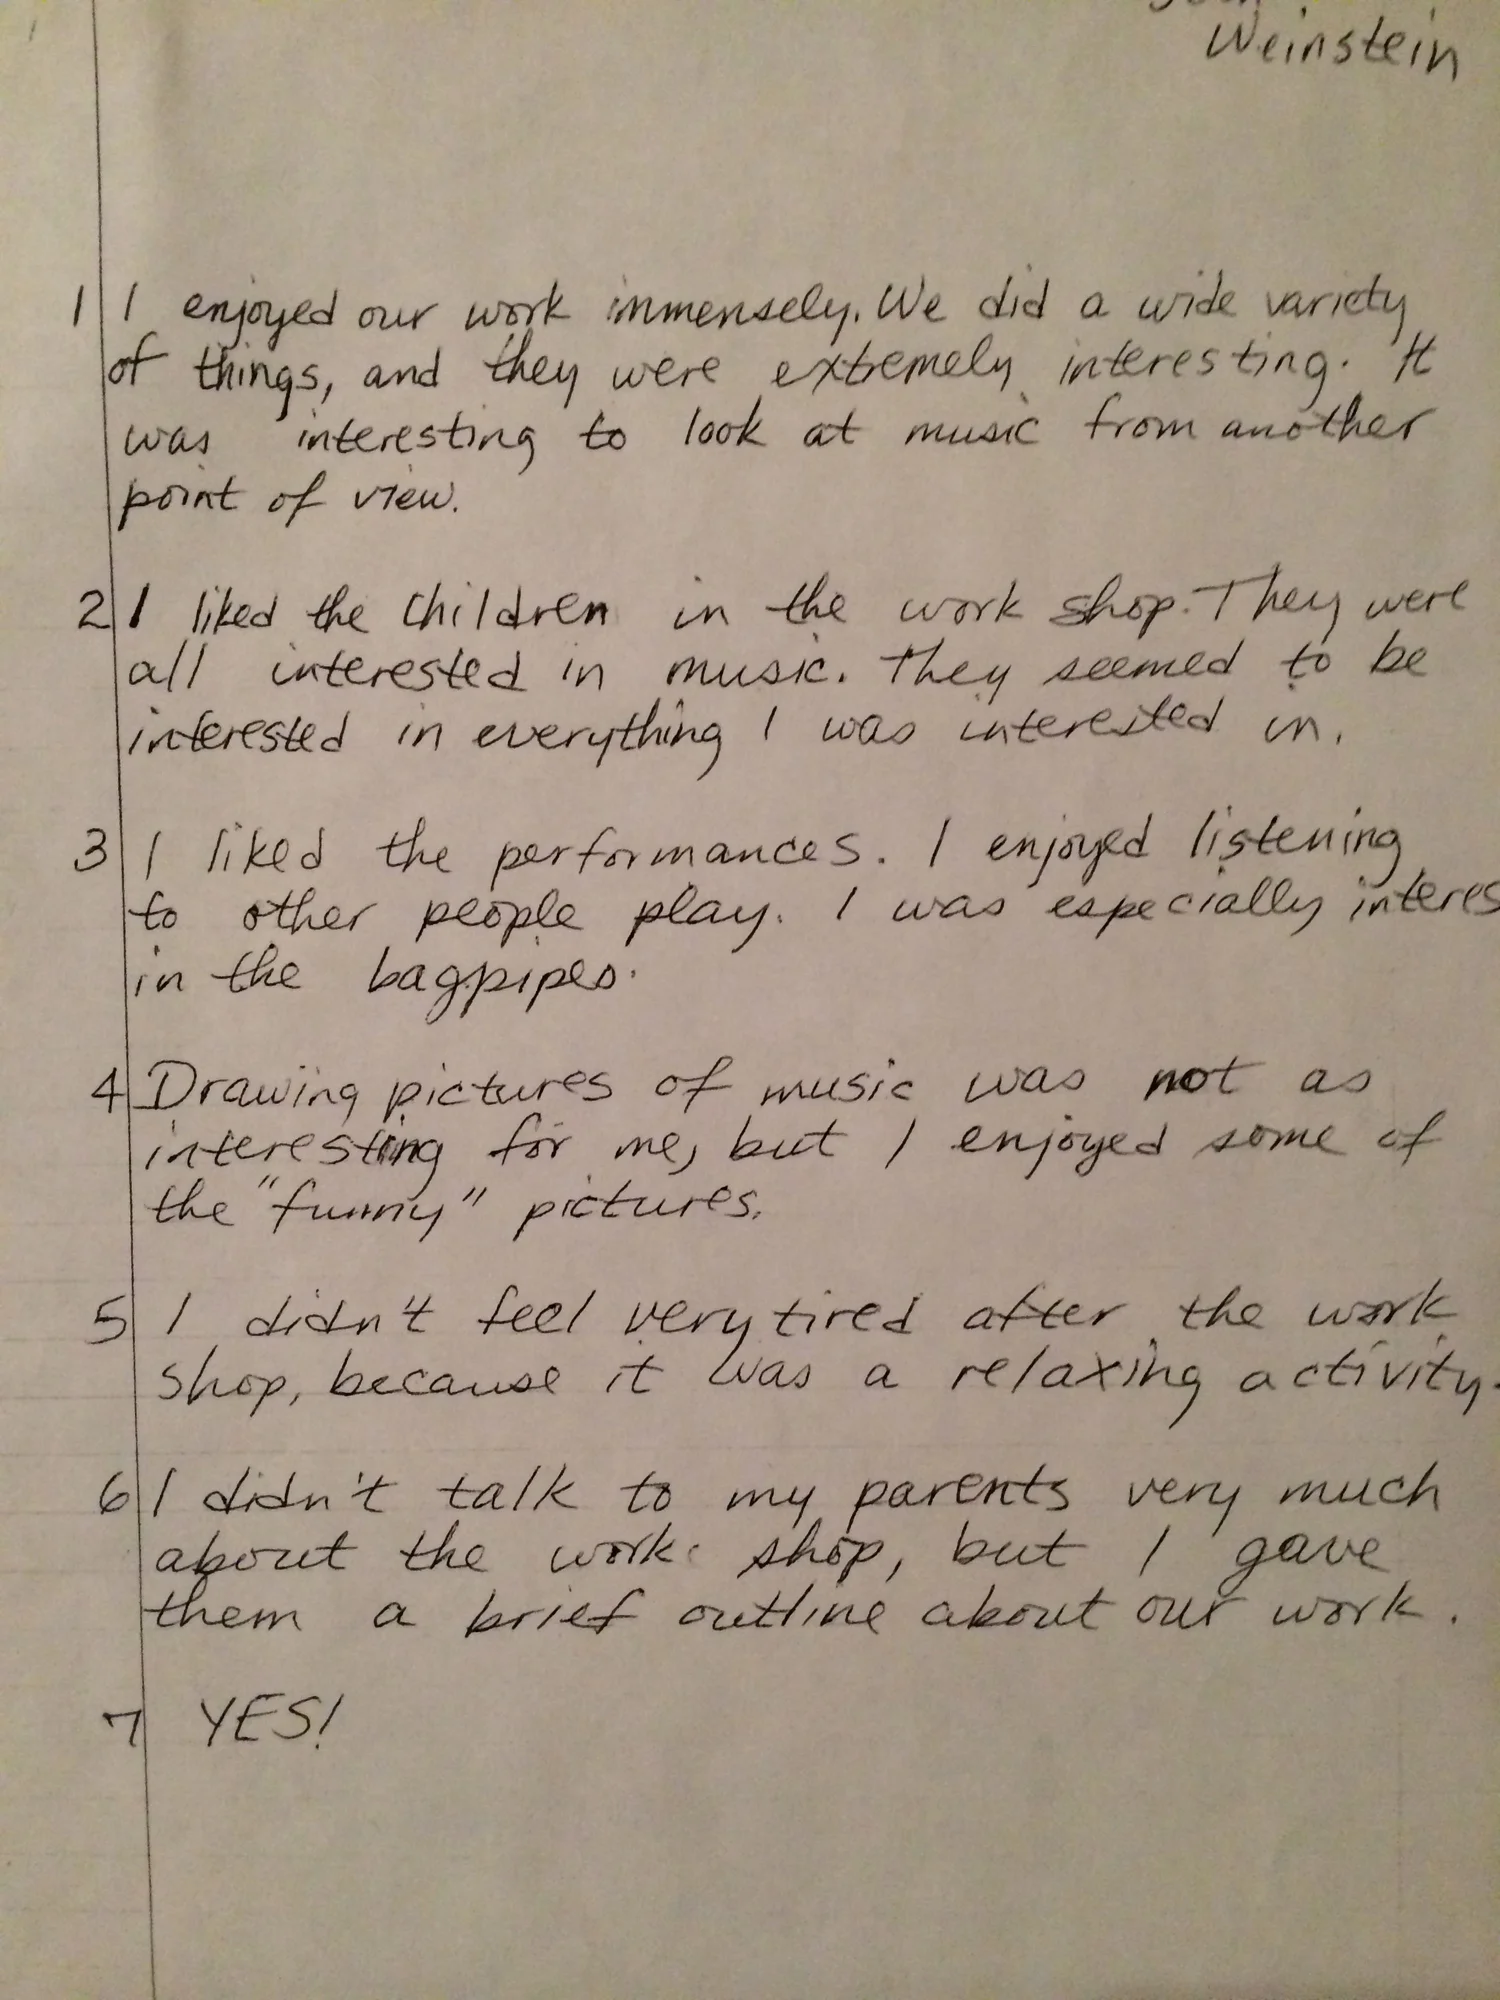 Weinstein
1 I enjoyed our work immensely. We did a wide variety
of things, and they were extremely interesting. It
was interesting to look at music from another
point of view.
2 I liked the children in the work shop. They were
all interested in music. They seemed to be
interested in everything I was interested in.
3 I liked the performances. I enjoyed listening
to other people play. I was especially interes
in the bagpipes.
4 Drawing pictures of music was not as
interesting for me, but I enjoyed some of
the "funny" pictures.
5 I didn't feel very tired after the work
shop, because it was a relaxing activity.
6 I didn't talk to my parents very much
about the work shop, but I gave
them a brief outline about our work.
7 YES!